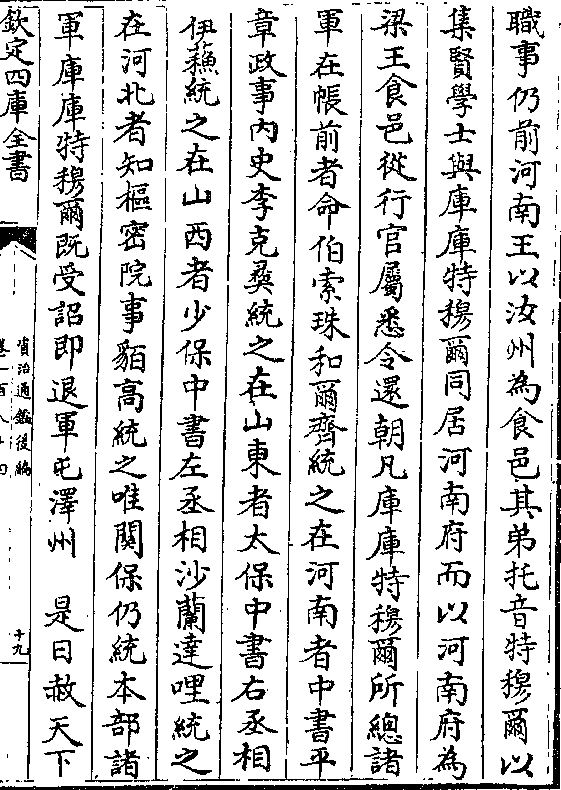 職事仍前河南王以汝州為食邑其弟托音特穆爾以
集賢學士與庫庫特穆爾同居河南府而以河南府為
梁王食邑從行官屬悉令還朝凡庫庫特穆爾所總諸
軍在帳前者命伯索珠和爾齊統之在河南者中書平
章政事內史李克彞統之在山東者太保中書右丞相
伊蘓統之在山西者少保中書左丞相沙蘭達哩統之
在河北者知樞密院事貊高統之唯關保仍統本部諸
軍庫庫特穆爾既受詔即退軍屯澤州　是日赦天下
欽定四庫全書
資治通鑑後編
卷一百八十四
十九